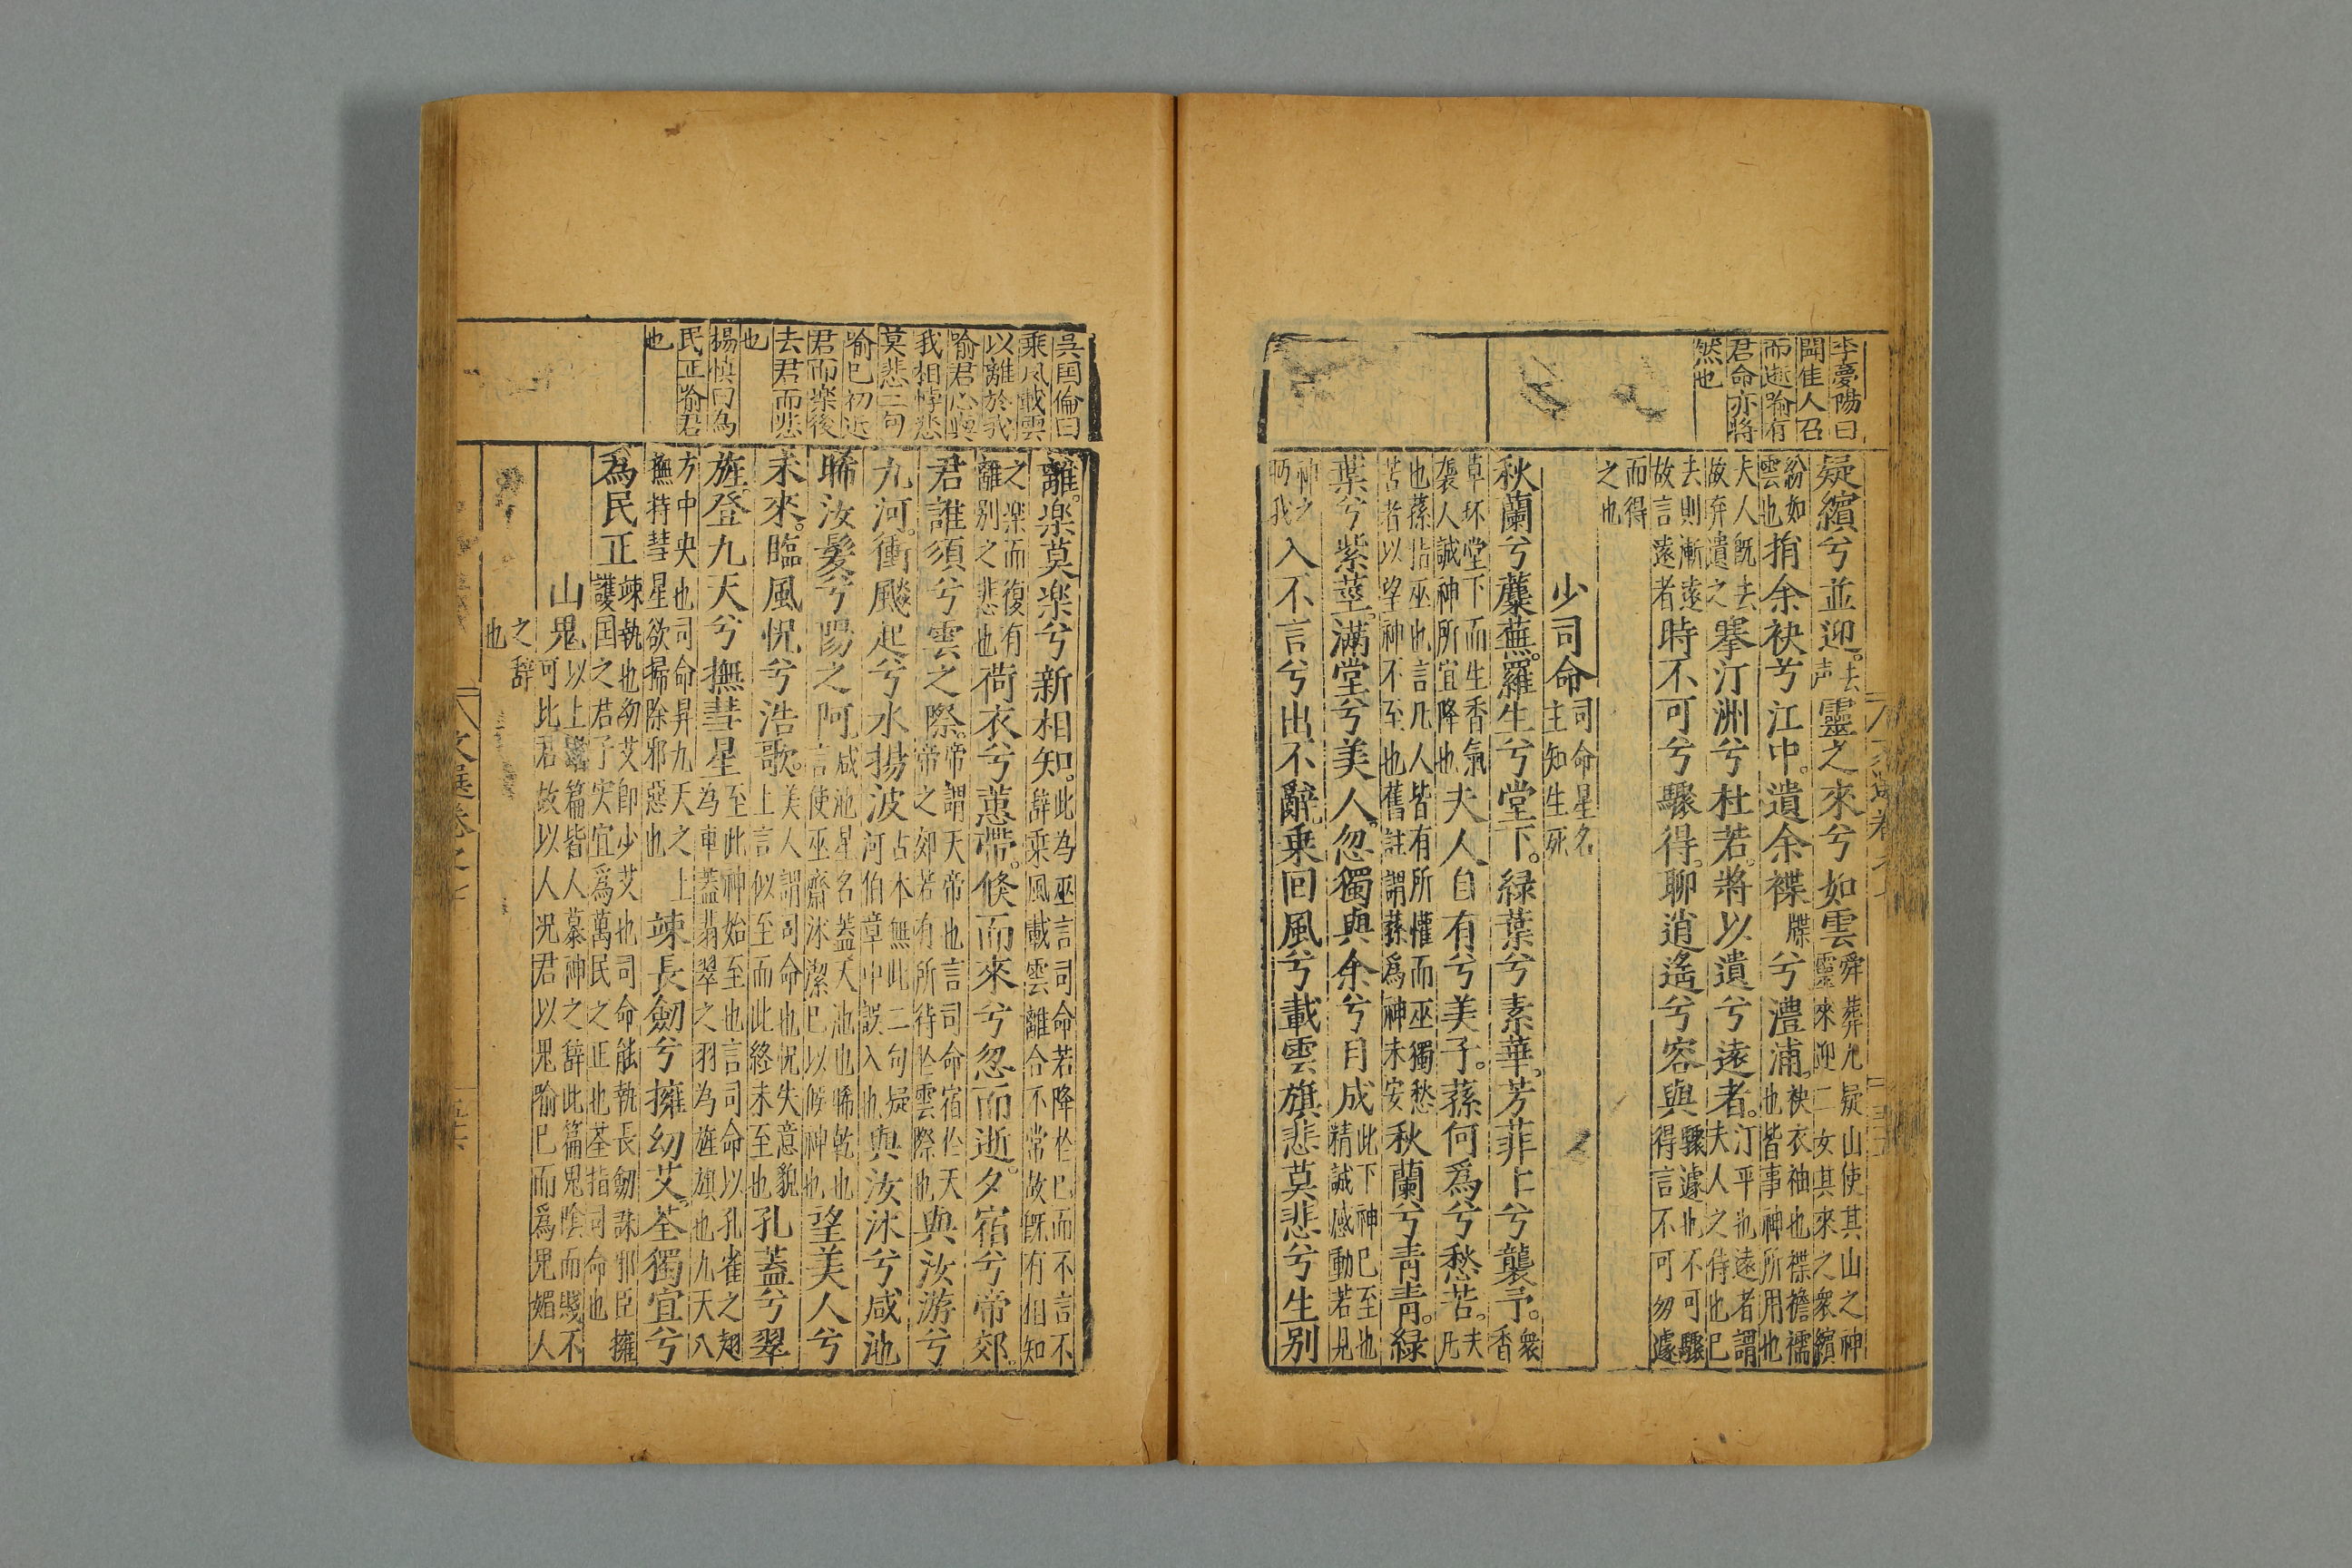 李夢陽曰
聞佳人召
而逝喻有
君命亦將
然也
疑繽兮並迎。去声靈之來兮如雲舜葬九疑山使其山之神靈來迎二女其來之衆繽
紛如雲也捐余袂兮江中。遺余褋牒兮澧浦。袂衣袖也褋襜襦也皆事神所用也
夫人既去故弃遺之搴汀洲兮杜若。將以遺兮遠者。汀平也遠者謂夫人之侍也已
去則漸遠故言遠者時不可兮驟得。聊逍遙兮容與驟遽也不可驟得言不可勿遽
而得之也
少司命司命星名主知生死
秋蘭兮蘪蕪。羅生兮堂下。緑葉兮素華。芳菲上兮襲予。衆香
草环堂下而生香氣襲人誠神所宜降也夫人自有兮美子。蓀何爲兮愁苦。夫凡
也蓀指巫也言凡人皆有所懽而巫獨愁苦者以望神不至也舊註謂蓀爲神未安秋蘭兮青青。緑
葉兮紫莖。滿堂兮美人。忽獨與余兮目成此下神已至也精誠感動若見
神之眄我入不言兮出不辭乗回風兮載雲旗悲莫悲兮生别
吳国倫曰
乘风載雲
以離於我
喻君心與
我相悖悲
莫悲二句
喻已初近
君而楽後
去君而悲
也
楊慎曰為
民正喻君
也
離。楽莫楽兮新相知。此為巫言司命若降於已而不言不辞乗風載雲離合不常故既有相知
之楽而復有離别之悲也荷衣兮蕙帶。倏而來兮忽而逝。夕宿兮帝郊。
君誰須兮雲之際。帝謂天帝也言司命宿於天帝之郊若有所待於雲際也與汝游兮
九河。衝飈起兮水揚波古本無此二句疑河伯章中誤入也與汝沐兮咸池
晞汝髮兮陽之阿咸池星名蓋天池也晞乾也言使巫齋沐潔已以候神也望美人兮
未來。臨風怳兮浩歌。美人謂司命也怳失意貌上言似至而此終未至也孔蓋兮翠
旌登九天兮撫彗星至此神始至也言司命以孔雀之翅為車蓋翡翠之羽為旌旗也九天八
方中央也司命昇九天之上撫持彗星欲掃除邪惡也竦長劒兮擁幼艾。荃獨宜兮
為民正竦執也幼艾即少艾也司命能執長劒誅邪臣擁護国之君子实宜爲萬民之正也荃指司命也
山鬼以上諸篇皆人慕神之辞此篇鬼陰而賤不可比君故以人况君以鬼喻已而爲鬼媚人
之辞也
文選卷之七